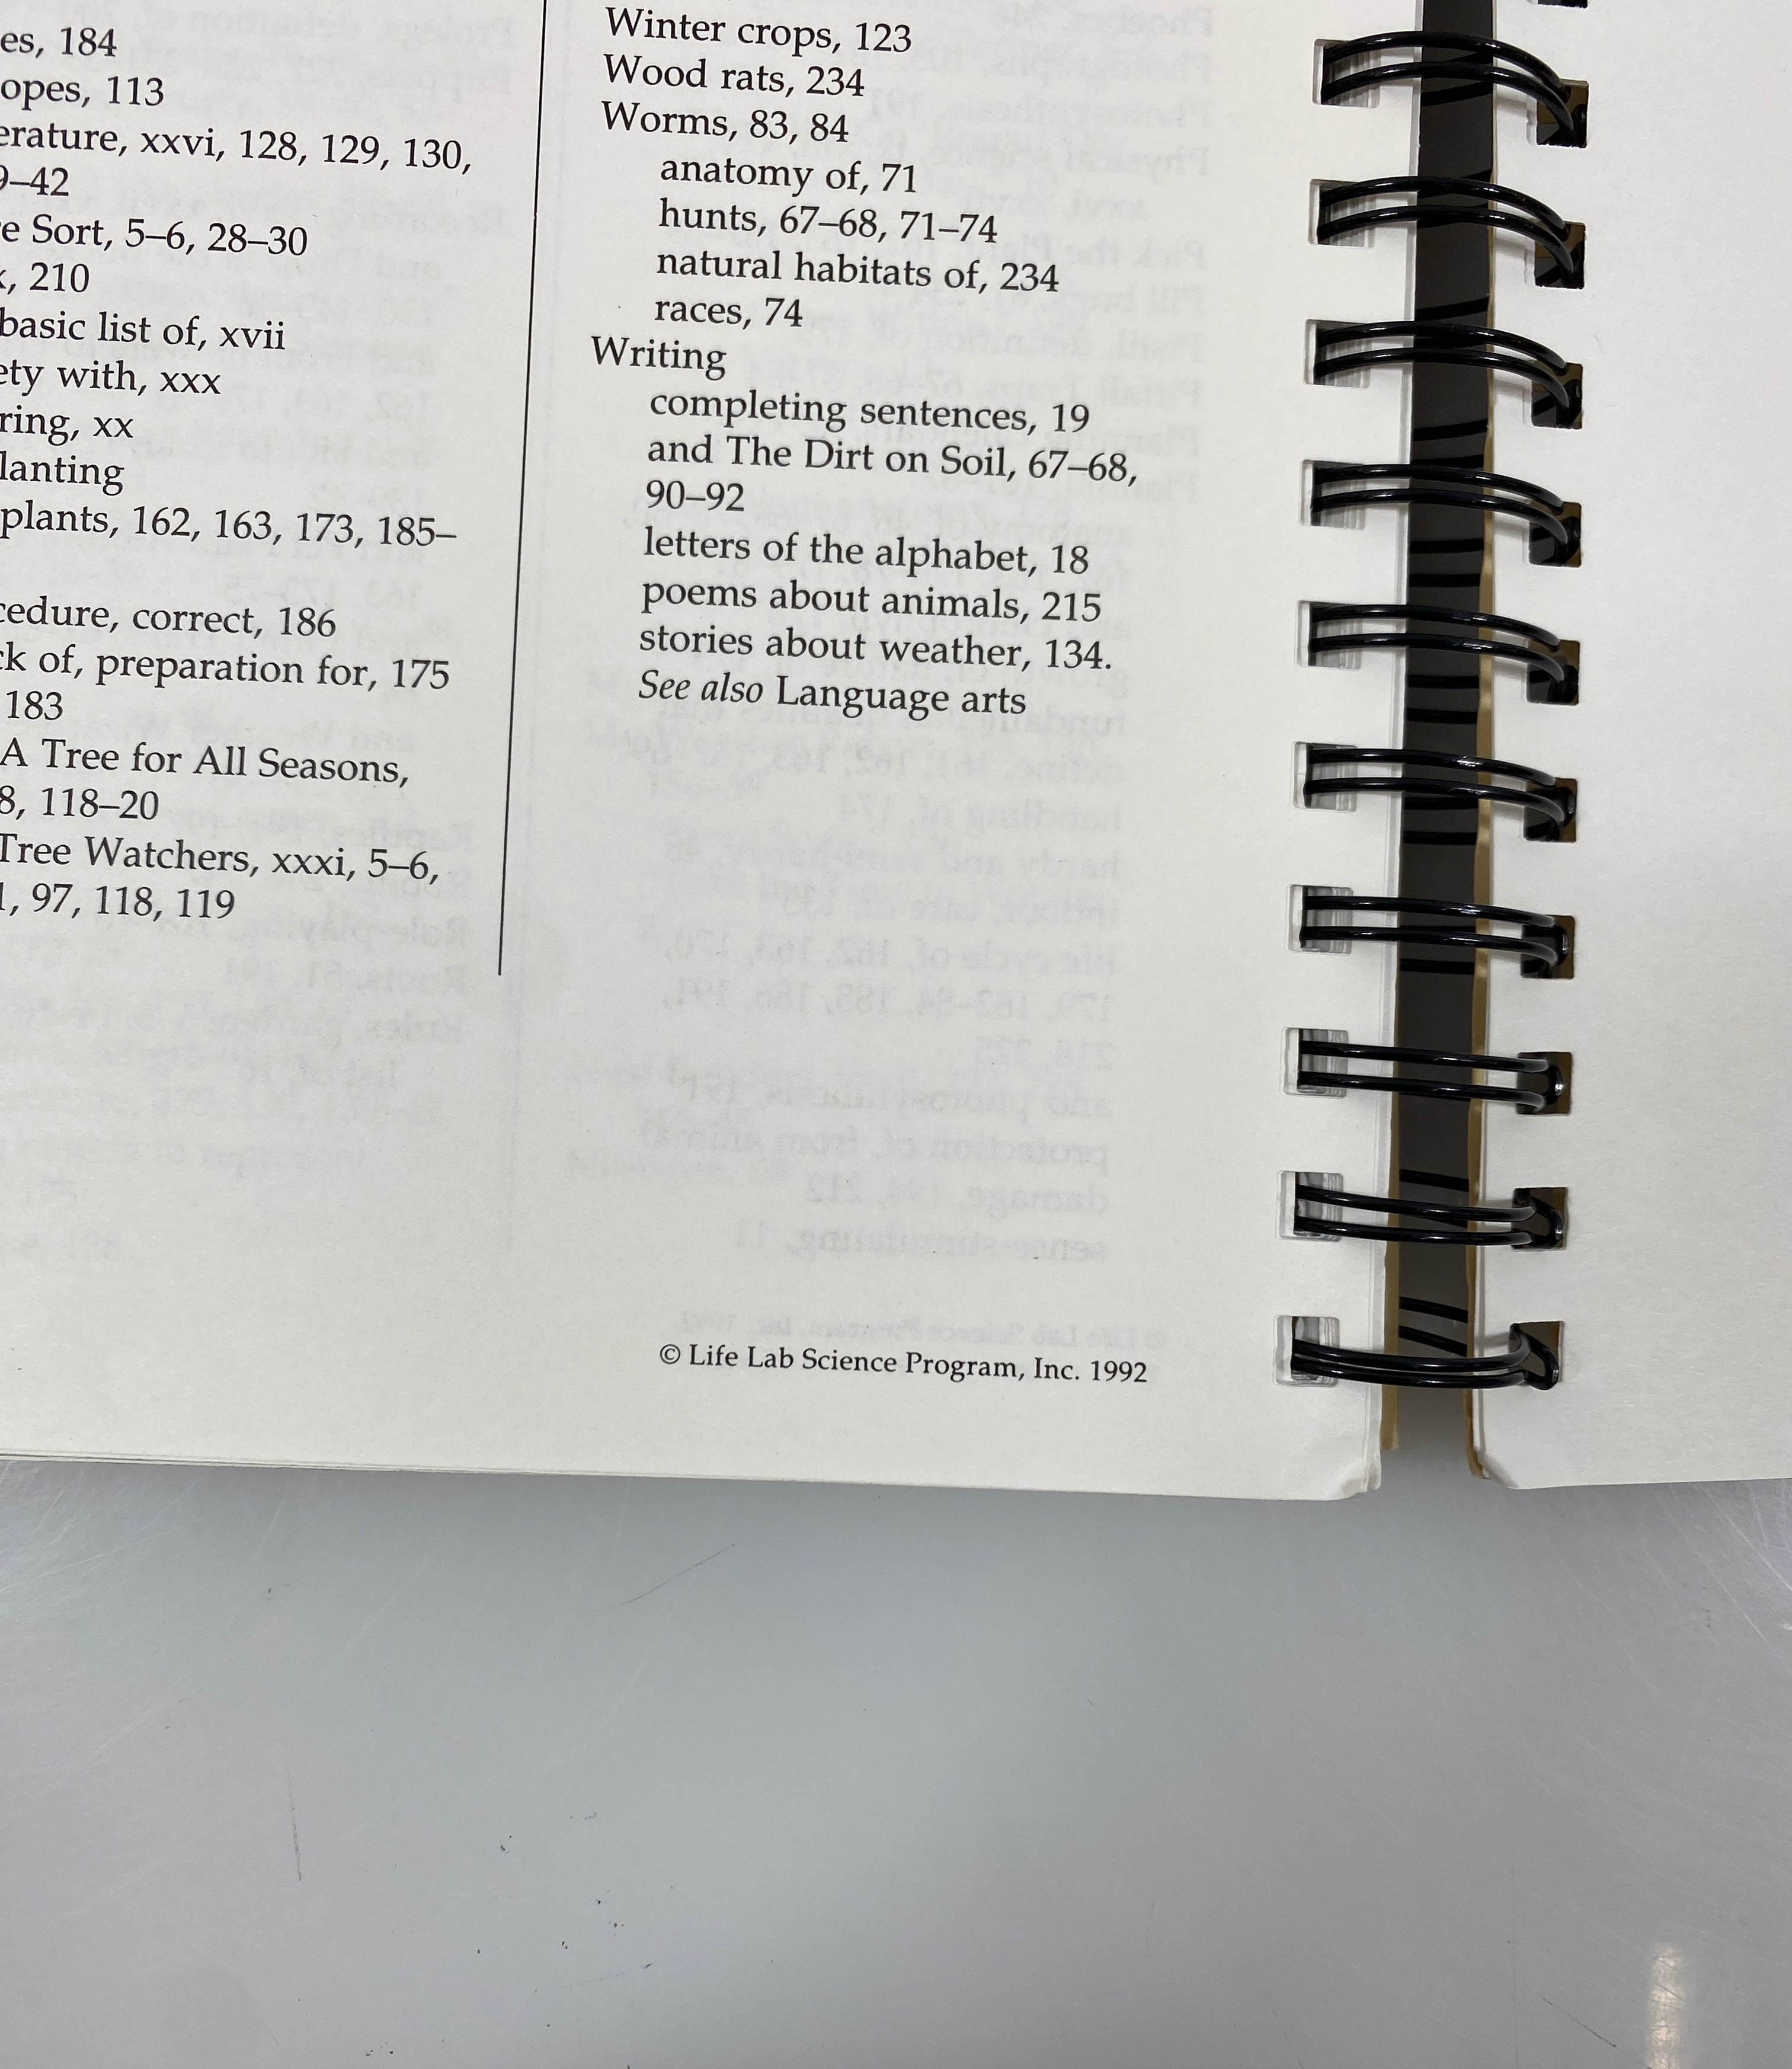 es, 184
opes, 113
erature, xxvi, 128, 129, 130,
9–42
e Sort, 5–6, 28–30
, 210
basic list of, xvii
ety with, xxx
ring, xx
lanting
plants, 162, 163, 173, 185–
cedure, correct, 186
ck of, preparation for, 175
183
A Tree for All Seasons,
8, 118–20
Tree Watchers, xxxi, 5–6,
1, 97, 118, 119
Winter crops, 123
Wood rats, 234
Worms, 83, 84
anatomy of, 71
hunts, 67–68, 71–74
natural habitats of, 234
races, 74
Writing
completing sentences, 19
and The Dirt on Soil, 67–68,
90–92
letters of the alphabet, 18
poems about animals, 215
stories about weather, 134.
See also Language arts
© Life Lab Science Program, Inc. 1992